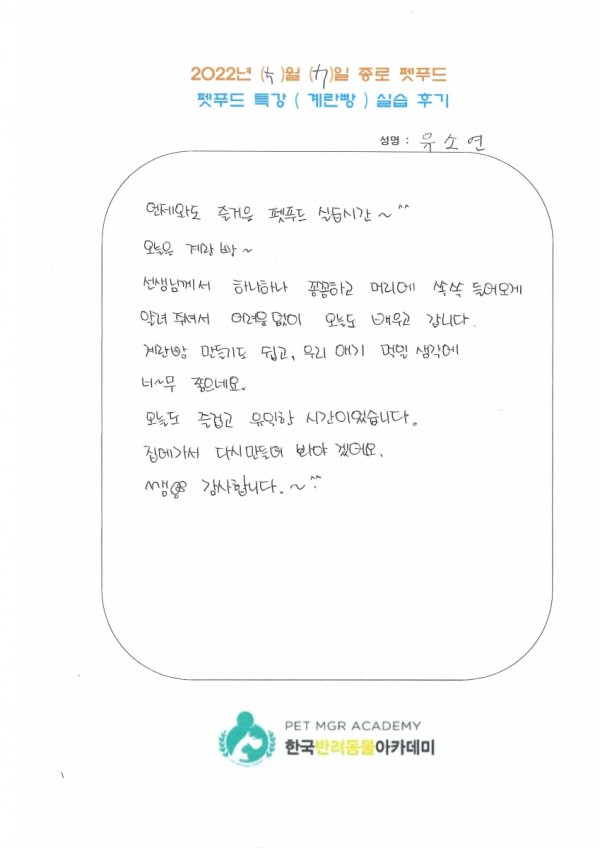 2022년 (5)월 (9)일 종로 펫푸드
펫푸드 특강 ( 계란빵 ) 실습 후기
성명 : 유소연
언제와도 즐거운 펫푸드 실습시간~^^
오늘은 계란빵~
선생님께서 하나하나 꼼꼼하고 머리에 쏙쏙 들어오게
알려 주셔서 어려움없이 오늘도 배우고 갑니다.
계란빵 만들기도 쉽고, 우리 애기 먹일 생각에
너~무 좋으네요.
오늘도 즐겁고 유익한 시간이었습니다.
집에가서 다시만들어 봐야 겠어요.
감사합니다.~^^
PET MGR ACADEMY
한국반려동물아카데미